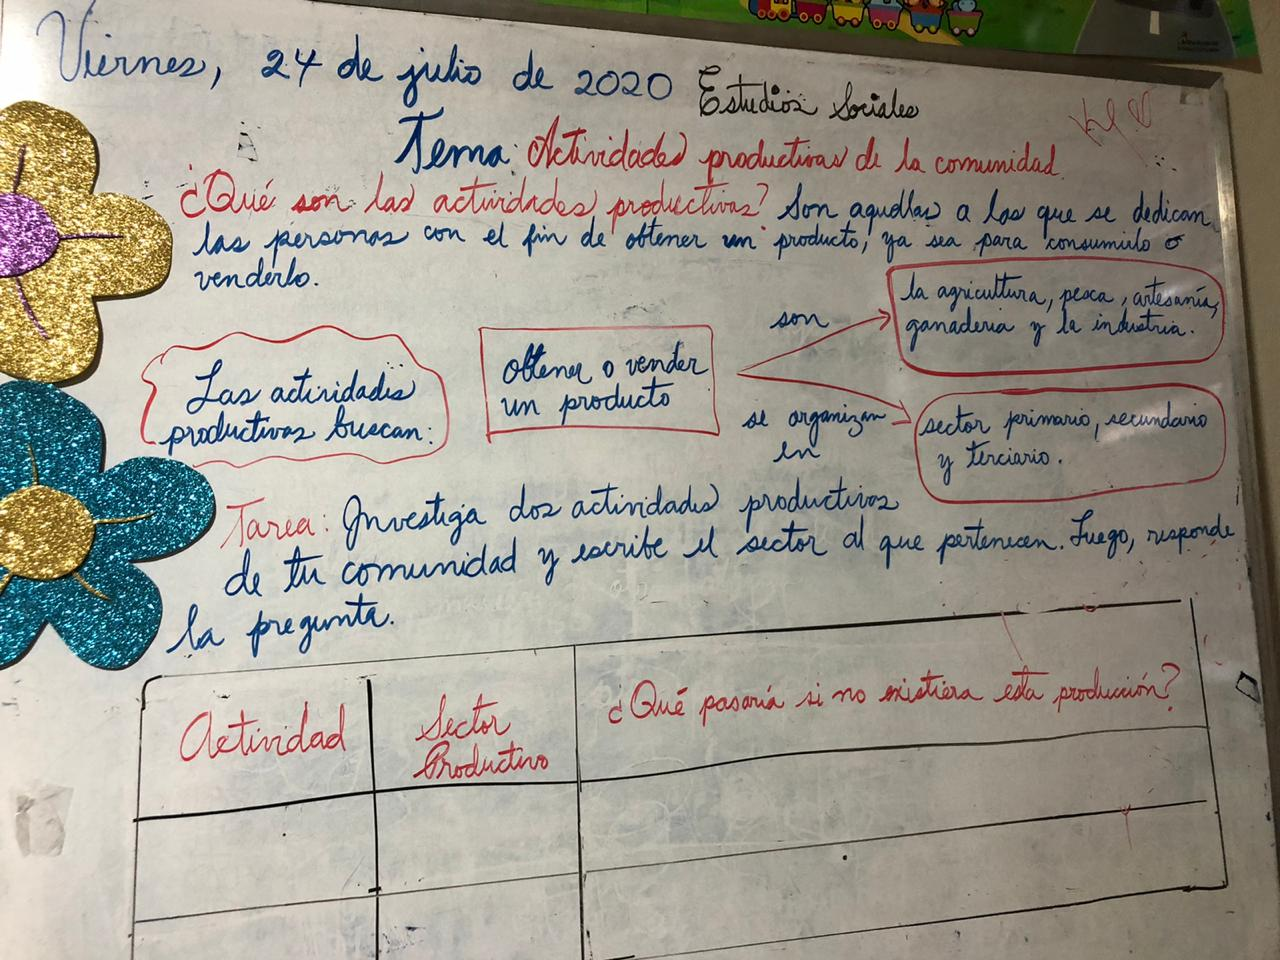 Viernes, 24 de julio de 2020
Estudios Sociales
Tema: Actividades productivas de la comunidad
¿Qué son las actividades productivas? Son aquellas a las que se dedican
las personas con el fin de obtener un producto, ya sea para consumirlo o
venderlo.
Las actividades
productivas buscan:
obtener o vender
un producto
son
la agricultura, pesca, artesanía,
ganadería y la industria.
se organizan
en
sector primario, secundario
y terciario.
Tarea: Investiga dos actividades productivas
de tu comunidad y escribe el sector al que pertenecen. Luego, responde
la pregunta.
Actividad
Sector
Productivo
¿Qué pasaría si no existiera esta producción?